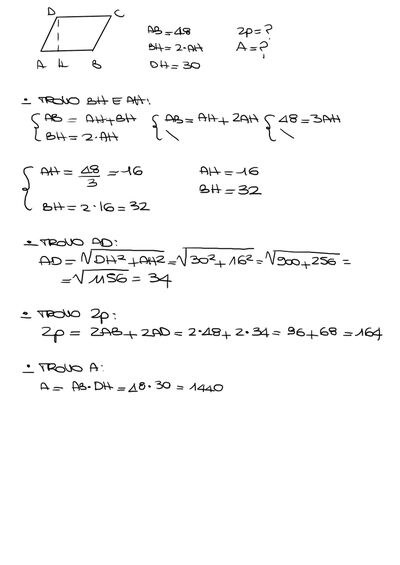 D C
A H B
AB=48 2p=?
BH=2·AH A=?
DH=30
· TROVO BH E AH:
{AB = AH+BH {AB=AH+2AH {48=3AH
{BH=2·AH \ \
{AH = 48/3 = 16 AH=16
BH=32
{BH=2·16=32
· TROVO AD:
AD=√DH²+AH²=√30²+16²=√900+256=
=√1156 = 34
· TROVO 2p:
2p = 2AB+2AD=2·48+2·34=96+68=164
· TROVO A:
A= AB·DH=48·30=1440